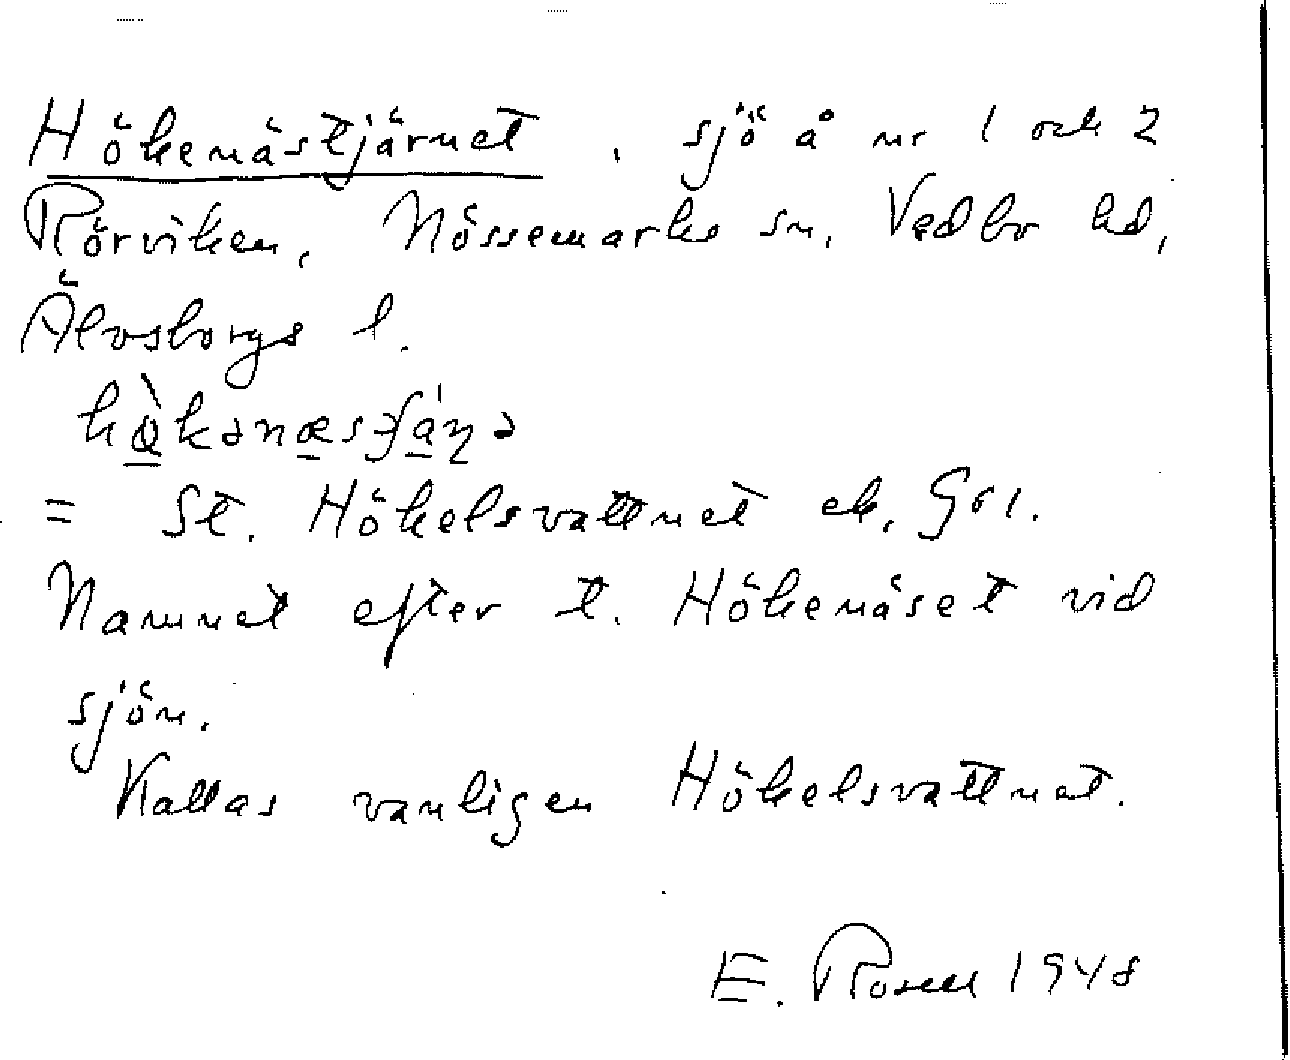 Hökenästjärnet, sjö å nr 1 och 2
Rörviken, Nössemarks sn, Vedbo hd,
Älvsborgs l.
= St. Hökelsvattnet ek. G01.
Namnet efter t. Hökenäset vid
sjön.
Kallas vanligen Hökelsvattnet.
E. Rosell 1948